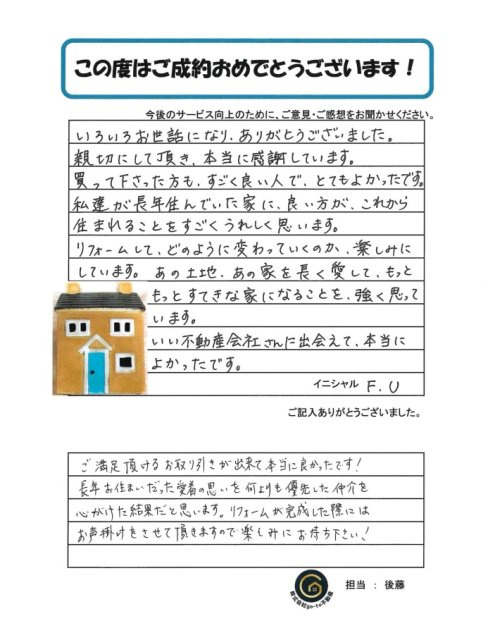 この度はご成約おめでとうございます！
今後のサービス向上のために、ご意見・ご感想をお聞かせください。
いろいろお世話になり、ありがとうございました。
親切にして頂き、本当に感謝しています。
買って下さった方も、すごく良い人で、とてもよかったです。
私達が長年住んでいた家に、良い方が、これから
住まれることをすごくうれしく思います。
リフォームして、どのように変わっていくのか、楽しみに
しています。あの土地、あの家を長く愛して、もっと
もっとすてきな家になることを、強く思って
います。
いい不動産会社さんに出会えて、本当に
よかったです。
イニシャル F.U
ご記入ありがとうございました。
ご満足頂けるお取り引きが出来て本当に良かったです！
長年お住まいだった愛着の思いを何よりも優先した仲介を
心がけた結果だと思います。リフォームが完成した際には
お声掛けをさせて頂きますので楽しみにお待ち下さい！
株式会社go-to不動産
担当 ： 後藤